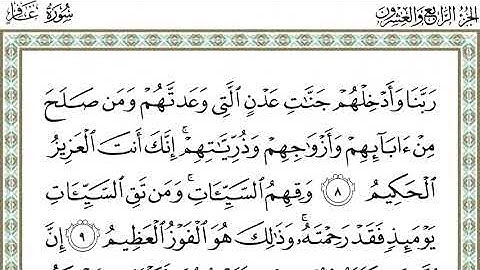 الجزء الرابع والعشرون
سورة غافر
رَبَّنَا وَأَدْخِلْهُمْ جَنَّاتِ عَدْنٍ الَّتِي وَعَدتَّهُمْ وَمَن صَلَحَ
مِنْ ءَابَآئِهِمْ وَأَزْوَاجِهِمْ وَذُرِّيَّاتِهِمْ ۚ إِنَّكَ أَنتَ الْعَزِيزُ
الْحَكِيمُ ٨ وَقِهِمُ السَّيِّئَاتِ ۚ وَمَن تَقِ السَّيِّئَاتِ
يَوْمَئِذٍ فَقَدْ رَحِمْتَهُ ۚ وَذَٰلِكَ هُوَ الْفَوْزُ الْعَظِيمُ ٩ إِنَّ